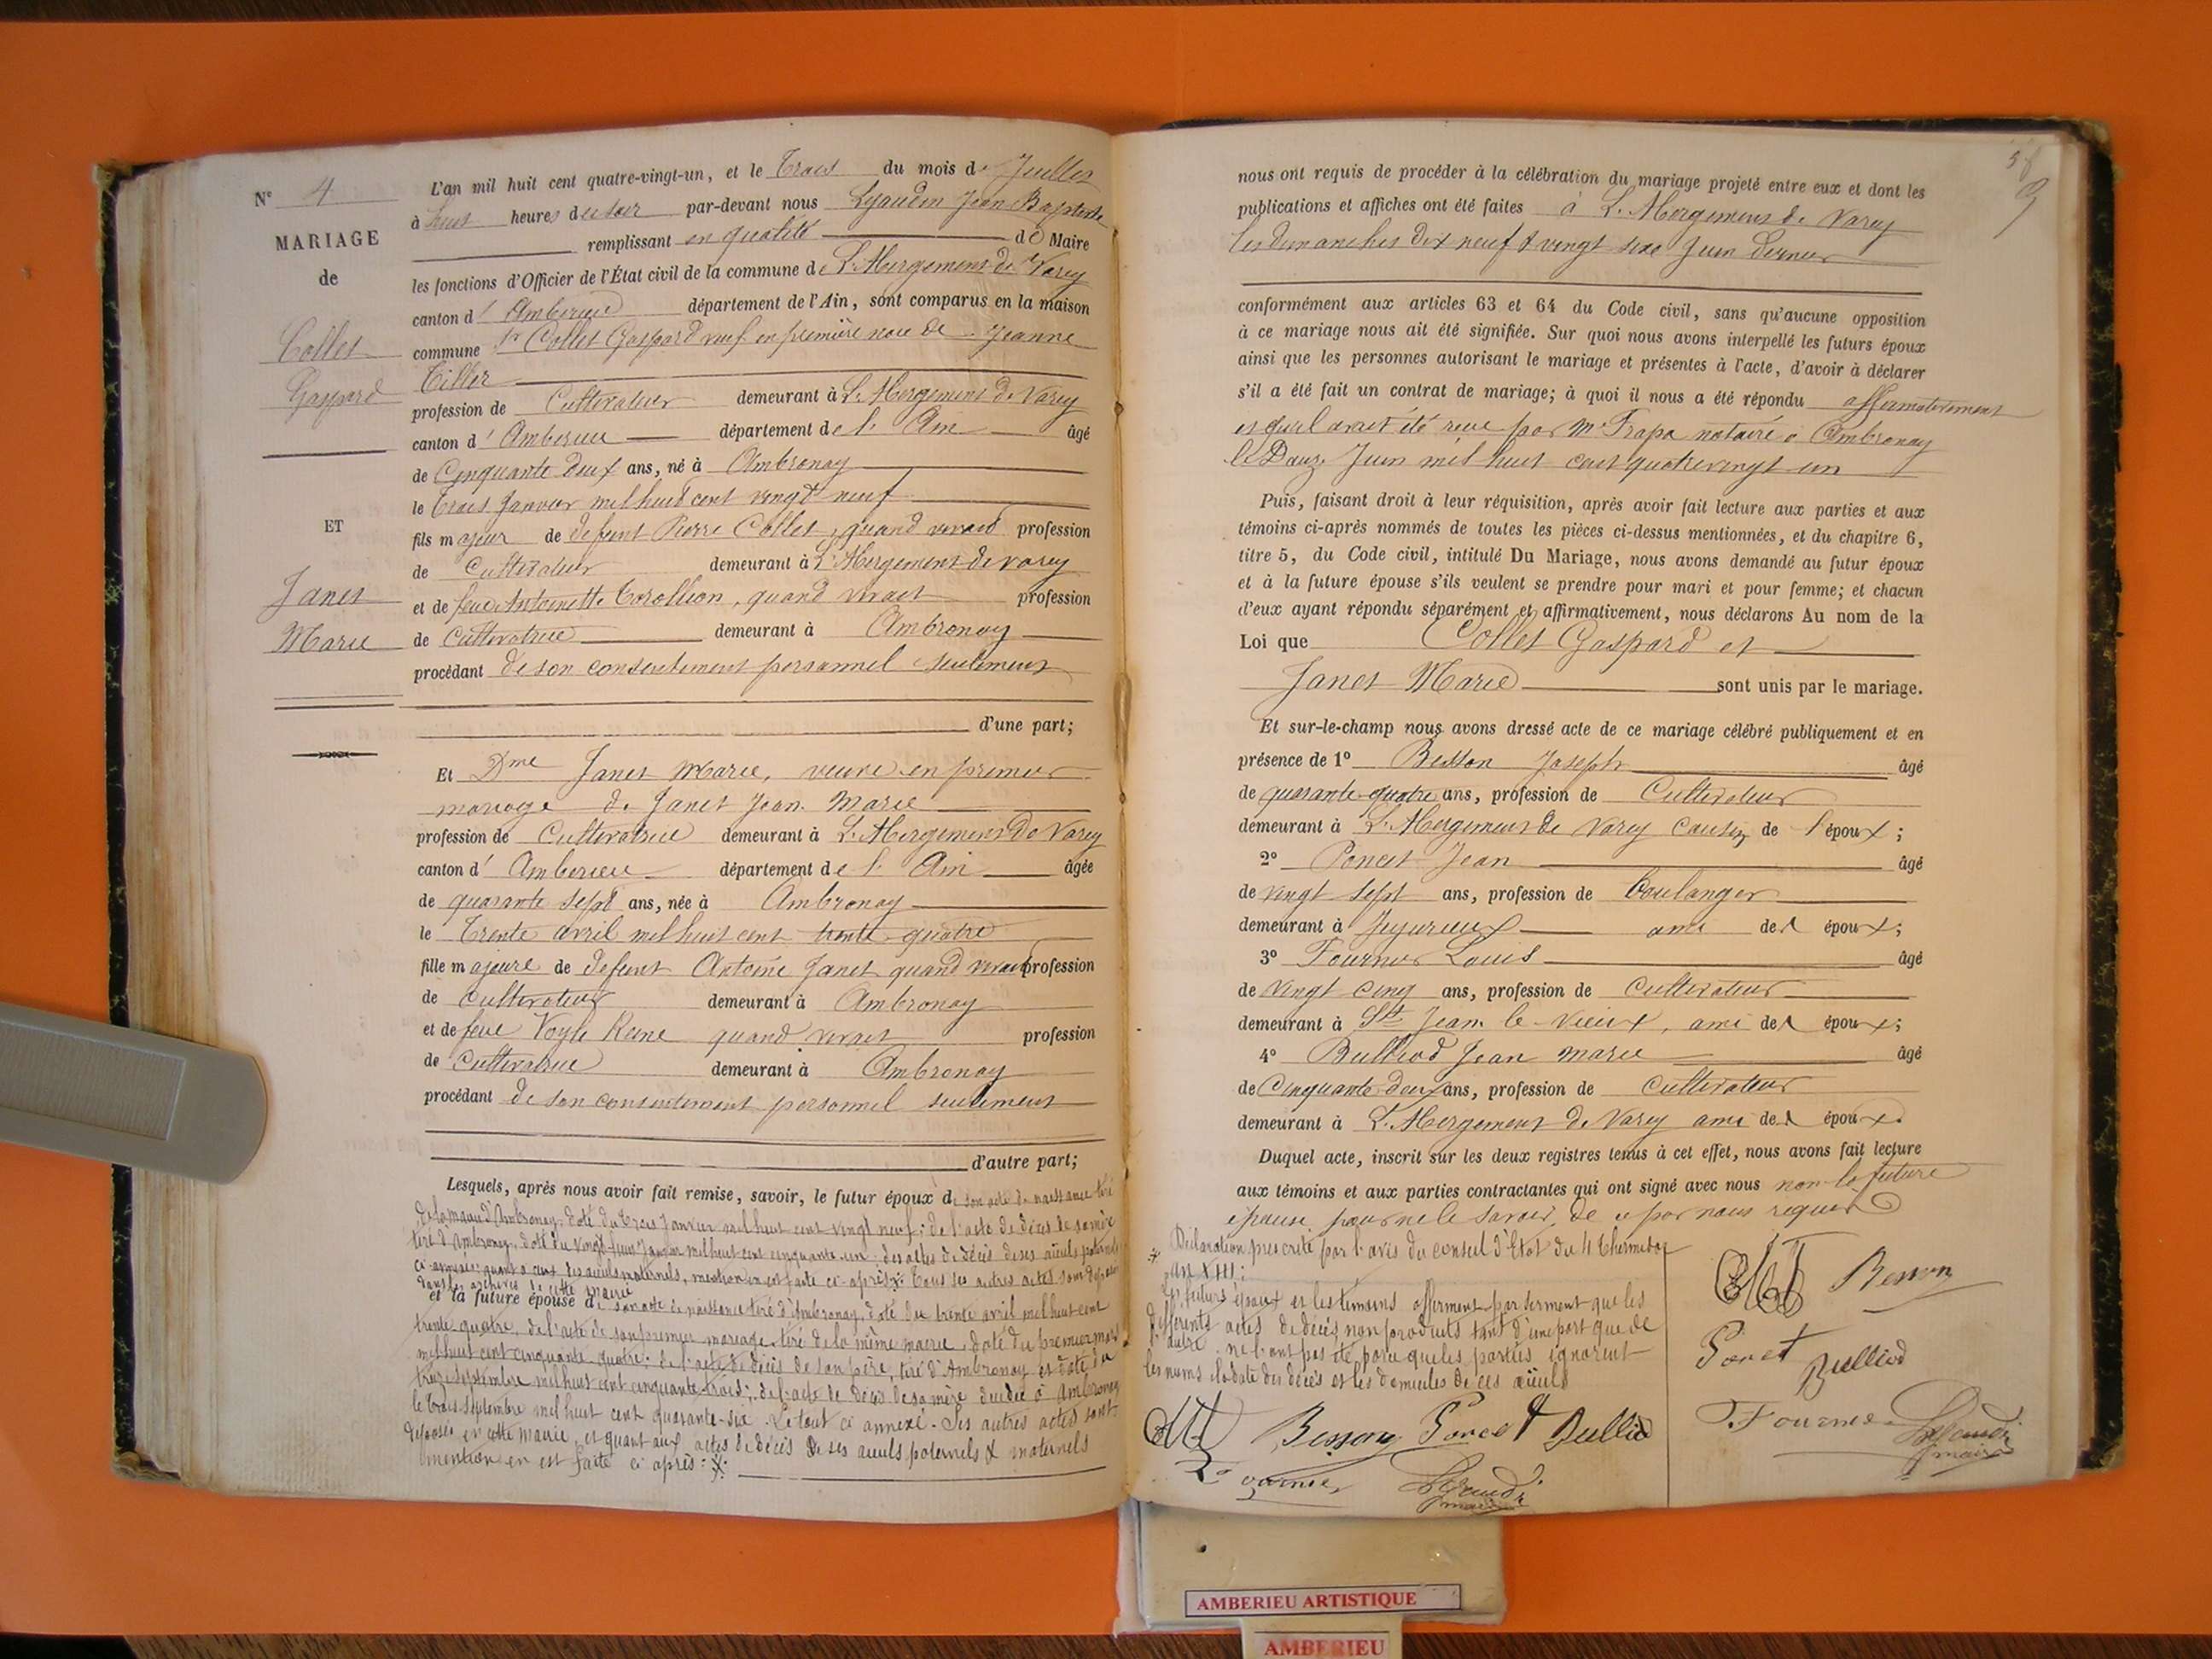 N° 4
MARIAGE
de
Collet
Gaspard
ET
Janet
Marie
L'an mil huit cent quatre-vingt-un, et le Trois du mois de Juillet
à huit heures du soir par-devant nous Jean Baptiste
remplissant en qualité de Maire
les fonctions d'Officier de l'État civil de la commune de L'Abergement de Varey
canton d'Amberieu département de l'Ain, sont comparus en la maison
commune Sr Collet Gaspard veuf en première noce de Jeanne
Tiller
profession de Cultivateur demeurant à L'Abergement de Varey
canton d'Amberieu département de l'Ain âgé
de Cinquante deux ans, né à Ambronay
le trois Janvier mil huit cent vingt neuf
fils majeur de defunt Pierre Collet, quand vivait profession
de Cultivateur demeurant à L'Abergement de Varey
et de feue Antoinette, quand vivait profession
de Cultivatrice demeurant à Ambronay
procédant de son consentement personnel seulement
d'une part;
Et Dme Janet Marie, veuve en premier
mariage de Janet Jean Marie
profession de Cultivatrice demeurant à L'Abergement de Varey
canton d'Amberieu département de l'Ain âgée
de quarante sept ans, née à Ambronay
le Trente avril mil huit cent trente quatre
fille majeure de defunt Antoine Janet quand vivait profession
de cultivateur demeurant à Ambronay
et de feue Voyle Reine quand vivait profession
de Cultivatrice demeurant à Ambronay
procédant de son consentement personnel seulement
d'autre part;
Lesquels, après nous avoir fait remise, savoir, le futur époux de son acte de naissance tiré
de la mairie d'Ambronay, daté du trois Janvier mil huit cent vingt neuf; de l'acte de décès de sa mère
tiré d'Ambronay, daté du vingt Janvier mil huit cent cinquante un; des actes de décès de ses aïeuls paternels
ci-annexés; quant à ceux des aïeuls maternels, mention en est faite ci-après: Tous ses autres actes sont déposés
dans les archives de cette mairie
et la future épouse de son acte de naissance tiré d'Ambronay, daté du trente avril mil huit cent
trente quatre, de l'acte de son premier mariage, tiré de la même mairie, daté du premier mars
mil huit cent cinquante quatre; de l'acte de décès de son père, tiré d'Ambronay et daté du
treize septembre mil huit cent cinquante trois; de l'acte de décès de sa mère décédée à Ambronay
le trois septembre mil huit cent quarante-six. Le tout ci annexé. Ses autres actes sont
déposés en cette mairie, et quant aux actes de décès de ses aïeuls paternels & maternels
mention en est faite ci après:
58
9
nous ont requis de procéder à la célébration du mariage projeté entre eux et dont les
publications et affiches ont été faites à L'Abergement de Varey
les dimanches dix neuf & vingt six Juin dernier
conformément aux articles 63 et 64 du Code civil, sans qu'aucune opposition
à ce mariage nous ait été signifiée. Sur quoi nous avons interpellé les futurs époux
ainsi que les personnes autorisant le mariage et présentes à l'acte, d'avoir à déclarer
s'il a été fait un contrat de mariage; à quoi il nous a été répondu affirmativement
et qu'il avait été reçu par Me Frapa notaire à Ambronay
le Douze Juin mil huit cent quatrevingt un
Puis, faisant droit à leur réquisition, après avoir fait lecture aux parties et aux
témoins ci-après nommés de toutes les pièces ci-dessus mentionnées, et du chapitre 6,
titre 5, du Code civil, intitulé Du Mariage, nous avons demandé au futur époux
et à la future épouse s'ils veulent se prendre pour mari et pour femme; et chacun
d'eux ayant répondu séparément et affirmativement, nous déclarons Au nom de la
Loi que Collet Gaspard et
Janet Marie sont unis par le mariage.
Et sur-le-champ nous avons dressé acte de ce mariage célébré publiquement et en
présence de 1° Besson Joseph âgé
de quarante-quatre ans, profession de Cultivateur
demeurant à L'Abergement de Varey cousin de l'époux;
2° Poncet Jean âgé
de vingt sept ans, profession de boulanger
demeurant à Jujurieux ami de l'époux;
3° Fournier Louis âgé
de vingt cinq ans, profession de Cultivateur
demeurant à St Jean le Vieux, ami de l'époux;
4° Bulliod Jean Marie âgé
de Cinquante deux ans, profession de cultivateur
demeurant à L'Abergement de Varey ami de l'époux.
Duquel acte, inscrit sur les deux registres tenus à cet effet, nous avons fait lecture
aux témoins et aux parties contractantes qui ont signé avec nous non la future
épouse pour ne le savoir, de ce par nous requise
Déclaration prescrite par l'avis du conseil d'Etat du 4 thermidor
an XIII:
Les futurs époux et les témoins afferment par serment que les
differents actes de décès non produits tant d'une part que de
l'autre ne l'ont pas été parce que les parties ignorent
les noms la date des décès et les domiciles de ces aïeuls
Besson
Poncet
Bulliod
Fournier
maire
Besson Poncet Bulliod
Fournier
maire
AMBERIEU ARTISTIQUE
AMBERIEU